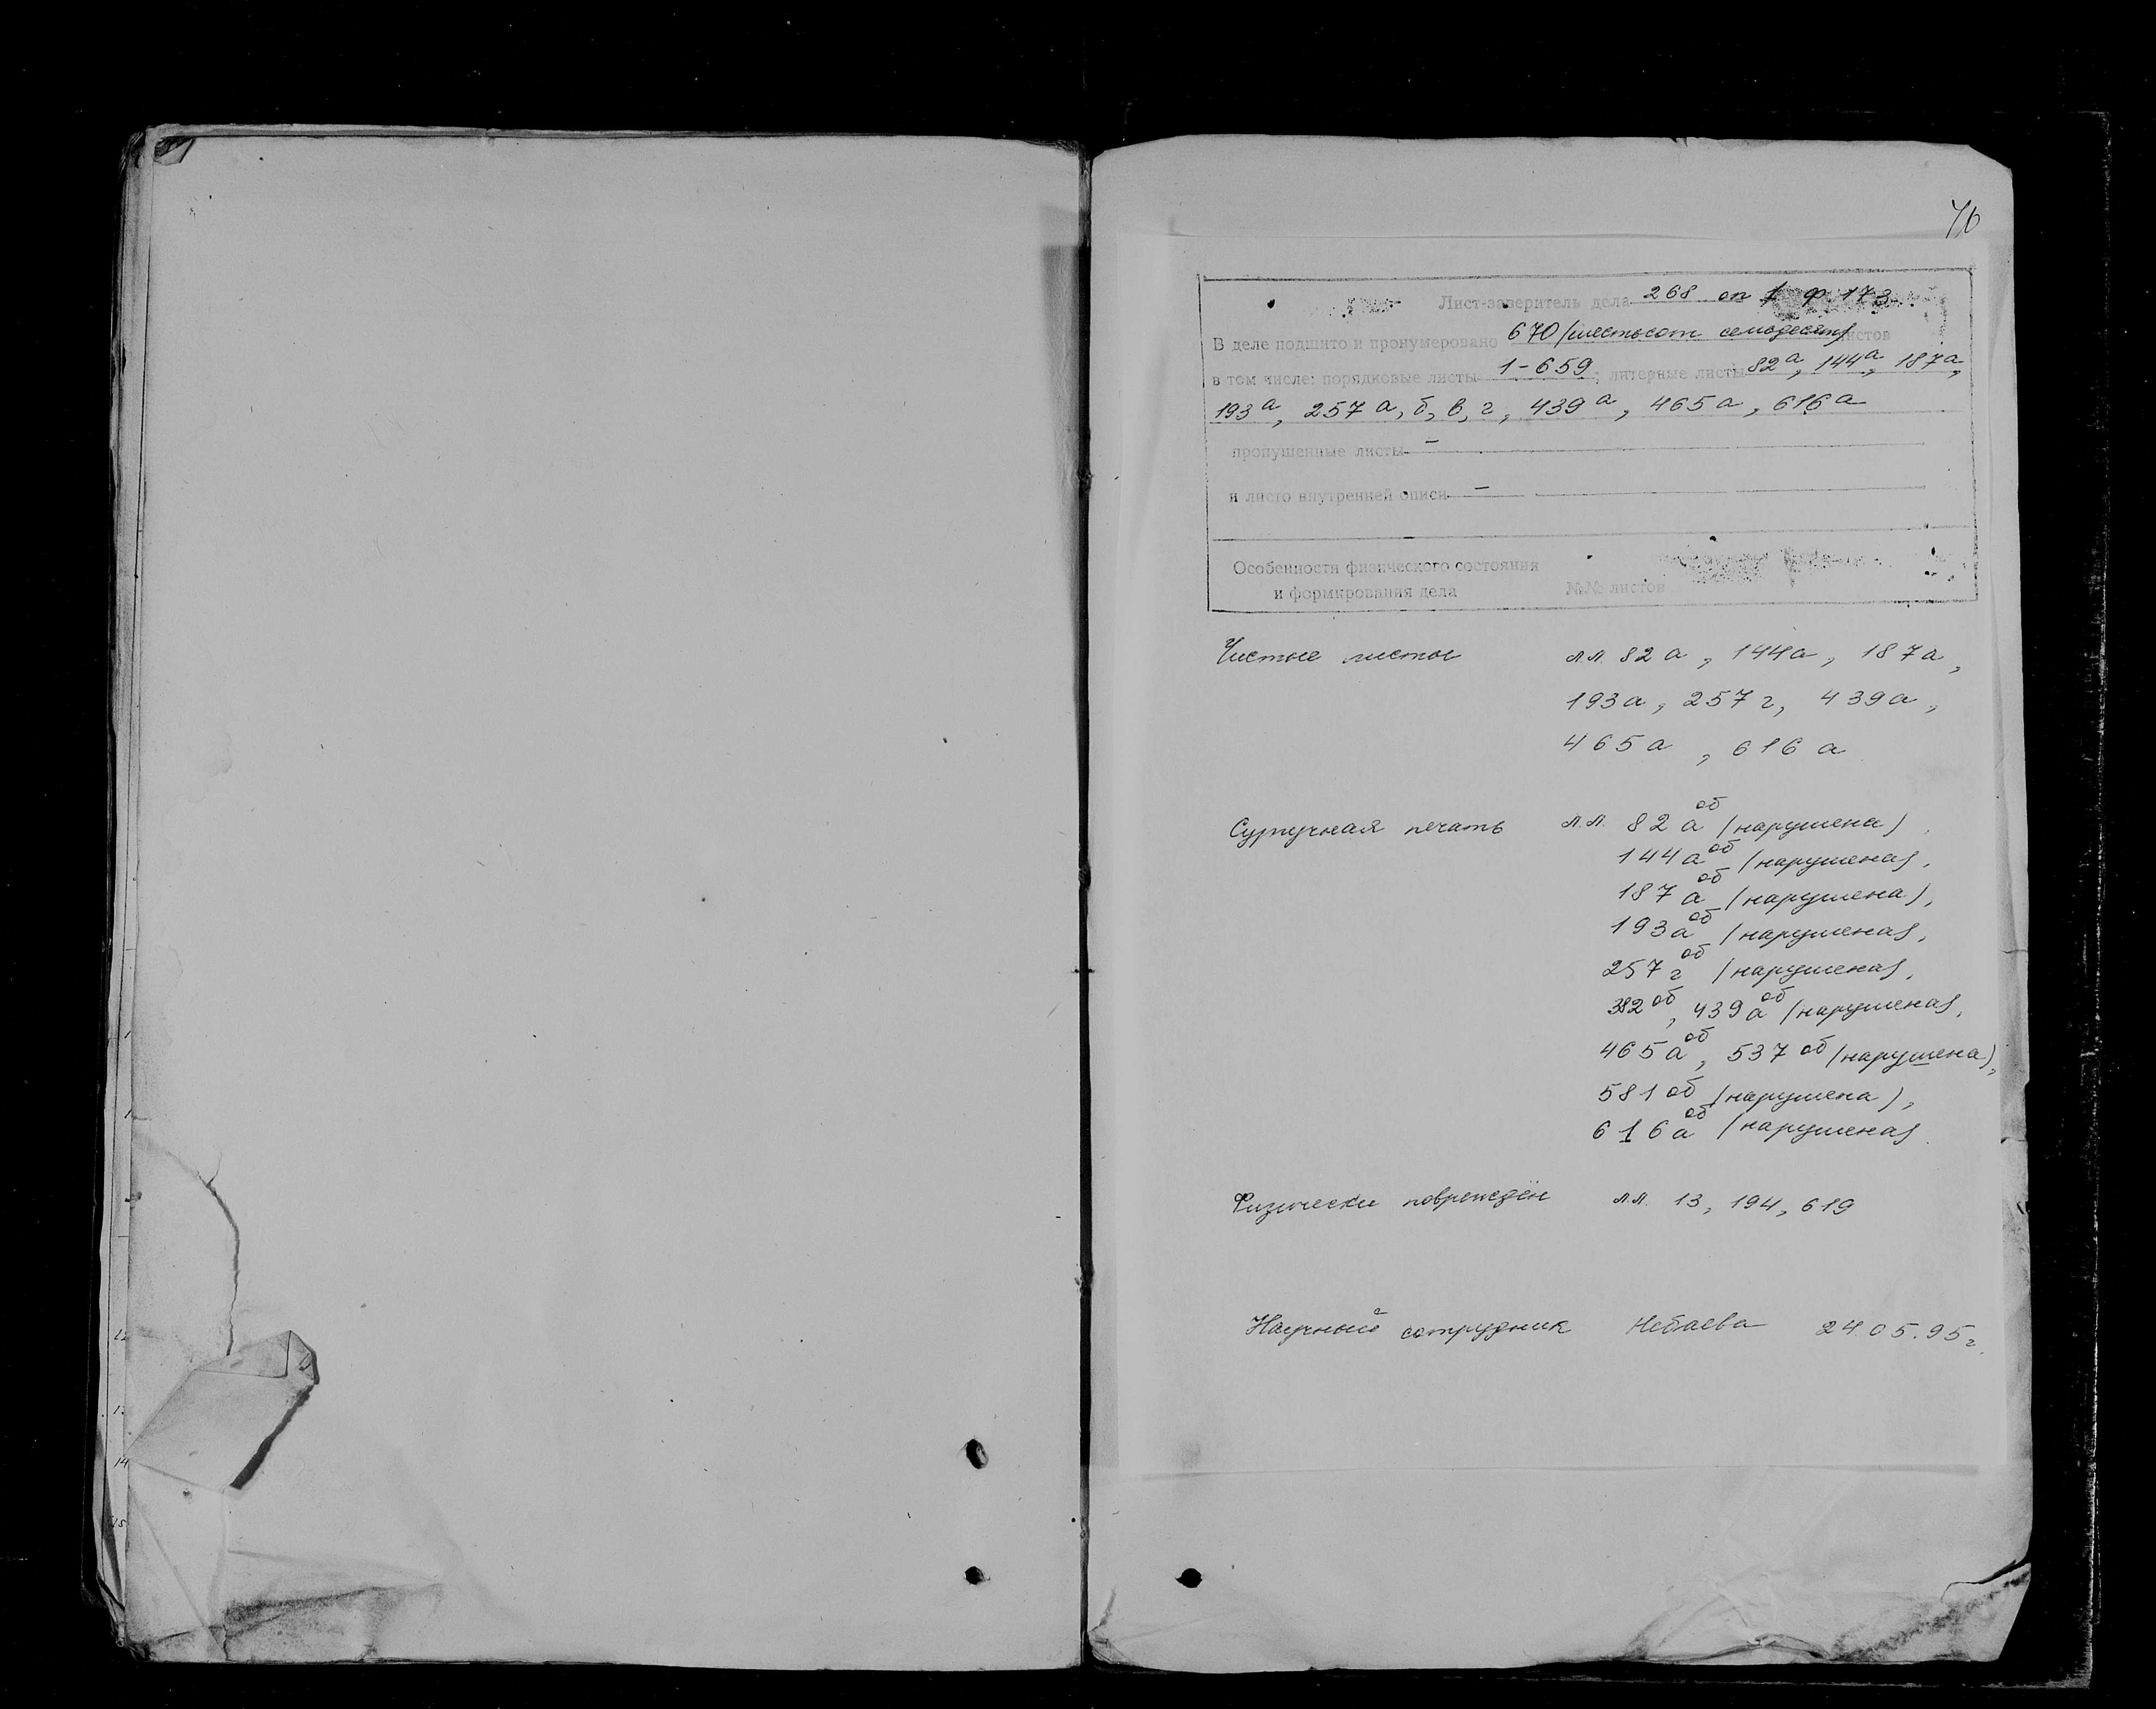 Лист-заверитель дела 268 оп 1 ф. 173
В деле подшито и пронумеровано 670 /шестьсот семьдесят/ листов
в том числе: порядковые листы 1-659; литерные листы 82а, 144а, 187а,
193а, 257а, б, в, г, 439а, 465а, 616а
пропущенные листы –
и листо внутренней описи –
Особенности физического состояния
и формирования дела
№№ листов
Чистые листы лл. 82а, 144а, 187а,
193а, 257г, 439а,
465а, 616а
Сургучная печать лл. 82а об /нарушена),
144а об /нарушена/,
187а об /нарушена),
193а об /нарушена/,
257г об /нарушена/,
382 об, 439а об /нарушена/,
465а об, 537 об /нарушена),
581 об /нарушена),
616а об /нарушена/
Физически поврежден лл. 13, 194, 619
Научный сотрудник Небаева 24.05.95г.
12
13
14
15